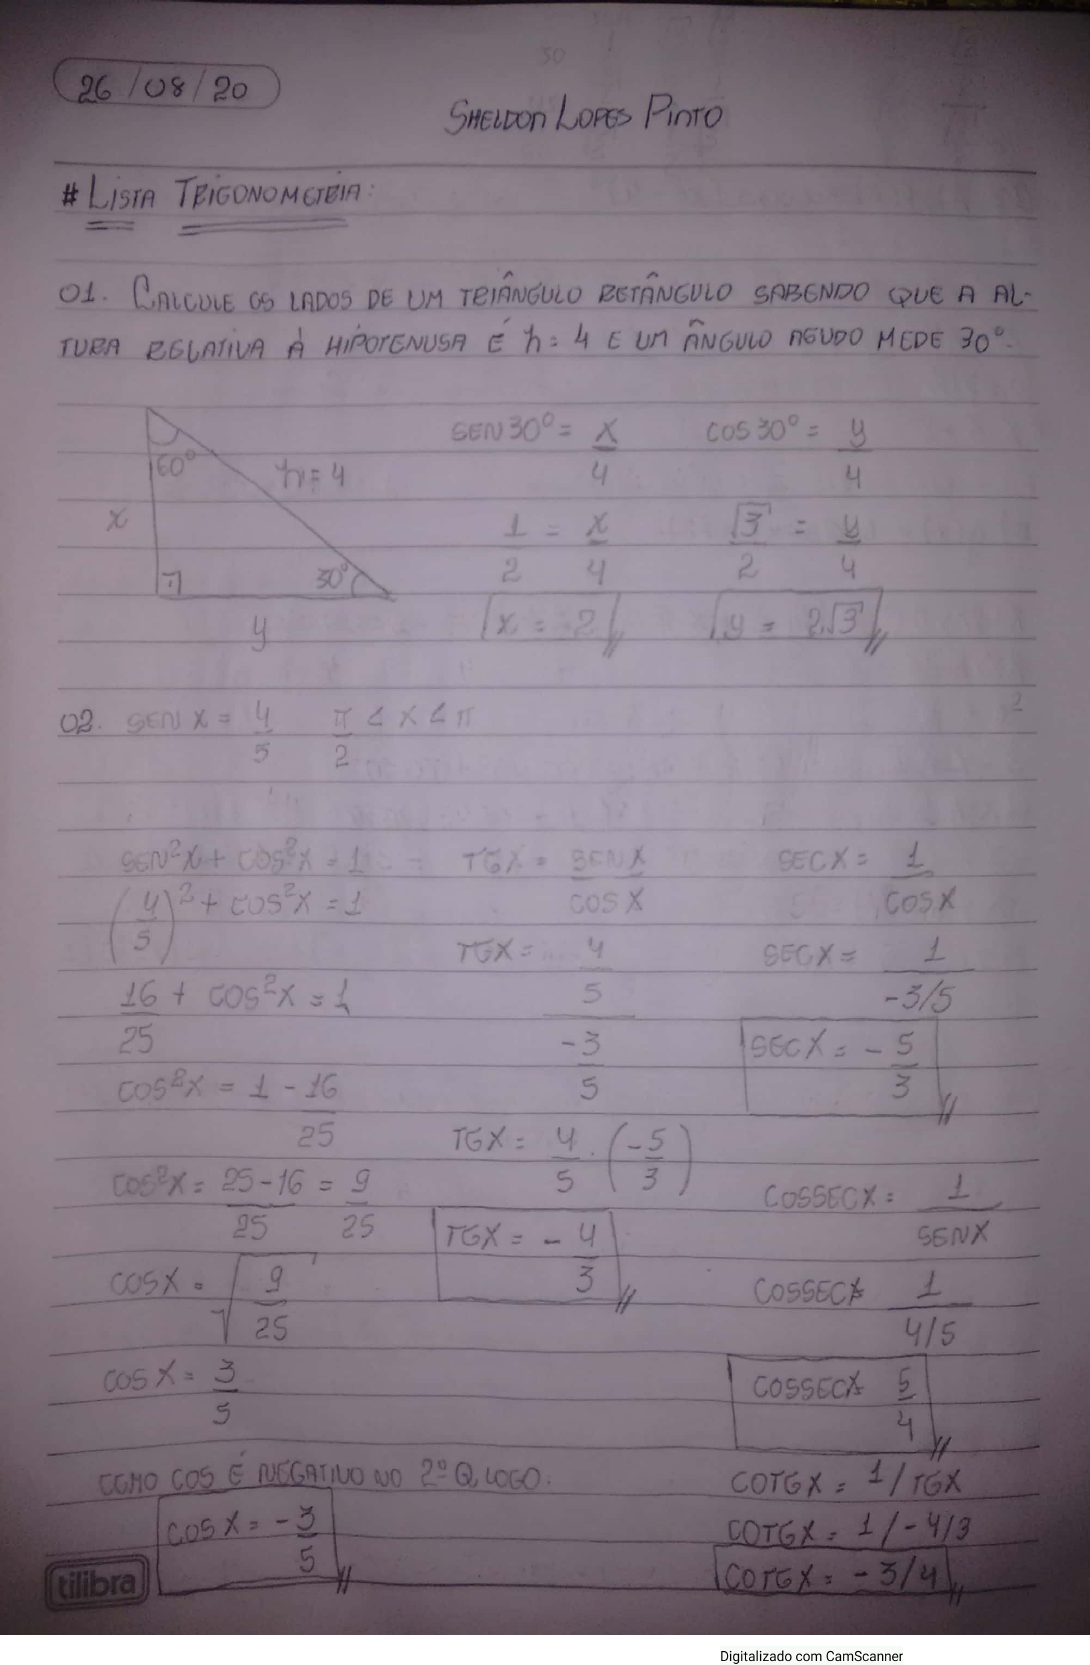 26/08/20
SHELDON LOPES PINTO
# LISTA TRIGONOMETRIA:
01. CALCULE OS LADOS DE UM TRIÂNGULO RETÂNGULO SABENDO QUE A AL-
TURA RELATIVA À HIPOTENUSA É h = 4 E UM ÂNGULO AGUDO MEDE 30°.
60°
h = 4
x
30°
y
SEN 30° = x/4
COS 30° = y/4
1/2 = x/4
√3/2 = y/4
x = 2
y = 2√3
02. SEN X = 4/5 π/2 < X < π
SEN²X + COS²X = 1
(4/5)² + COS²X = 1
16/25 + COS²X = 1
COS²X = 1 - 16/25
COS²X = 25-16/25 = 9/25
COS X = √9/25
COS X = 3/5
COMO COS É NEGATIVO NO 2º Q LOGO.
COS X = -3/5
TGX = SEN X/COS X
TGX = 4/5/-3/5
TGX = 4/5 . (-5/3)
TGX = -4/3
SECX = 1/COSX
SECX = 1/-3/5
SECX = -5/3
COSSECX = 1/SENX
COSSECX = 1/4/5
COSSECX = 5/4
COTGX = 1/TGX
COTGX = 1/-4/3
COTGX = -3/4
tilibra
Digitalizado com CamScanner